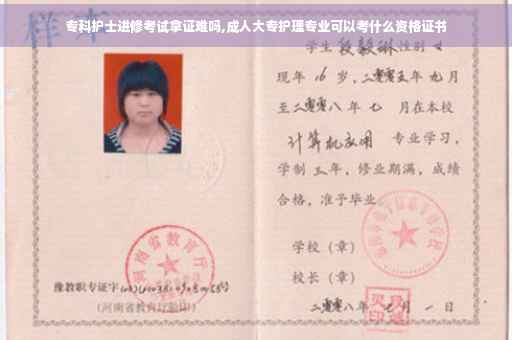 专科护士进修考试拿证难吗,成人大专护理专业可以考什么资格证书
样本
学生 段毅琳 性别 女
现年 16 岁，二零零五年 九月
至二零零八年 七 月在本校
计算机应用 专业学习，
学制 三 年，修业期满，成绩
合格，准予毕业
学校（章）
校长（章）
二零零八年 月一日
河南省教育厅
豫教职专证字
（河南省教育厅验印）